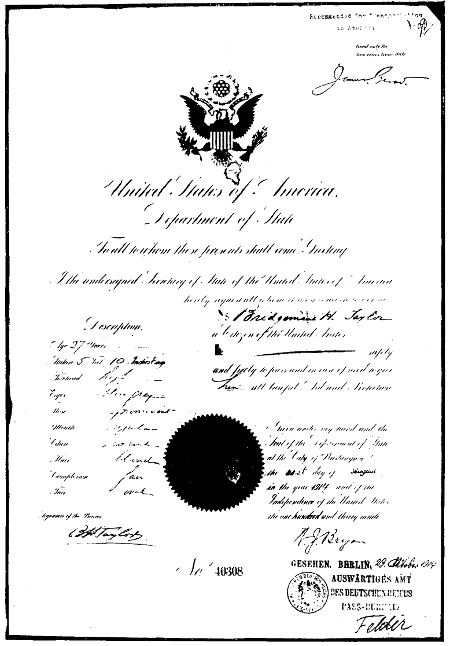 Recommended for Transportation
to America
Good only for
United States of America.
Department of State
To all to whom these presents shall come Greeting
I the undersigned Secretary of State of the United States of America
hereby request all whom it may concern to
Bridgeman H. Taylor
a Citizen of the United States
safely
and freely to pass and in case of need to give
him all lawful Aid and Protection
Description
Age 27 Years
Stature 5 Feet 10 Inches Eng
Forehead
Eyes
Nose
Mouth
Chin
Hair blond
Complexion fair
Face oval
Signature of the Bearer
B H Taylor
Given under my hand and the
Seal of the Department of State
at the City of Washington
the day of
in the year 1914 and of the
Independence of the United States
the one hundred and thirty ninth
W. J. Bryan
No. 40308
GESEHEN, BERLIN, Oktober 1914
AUSWÄRTIGES AMT
DES DEUTSCHEN REICHS
PASS-BUREAU
Felder